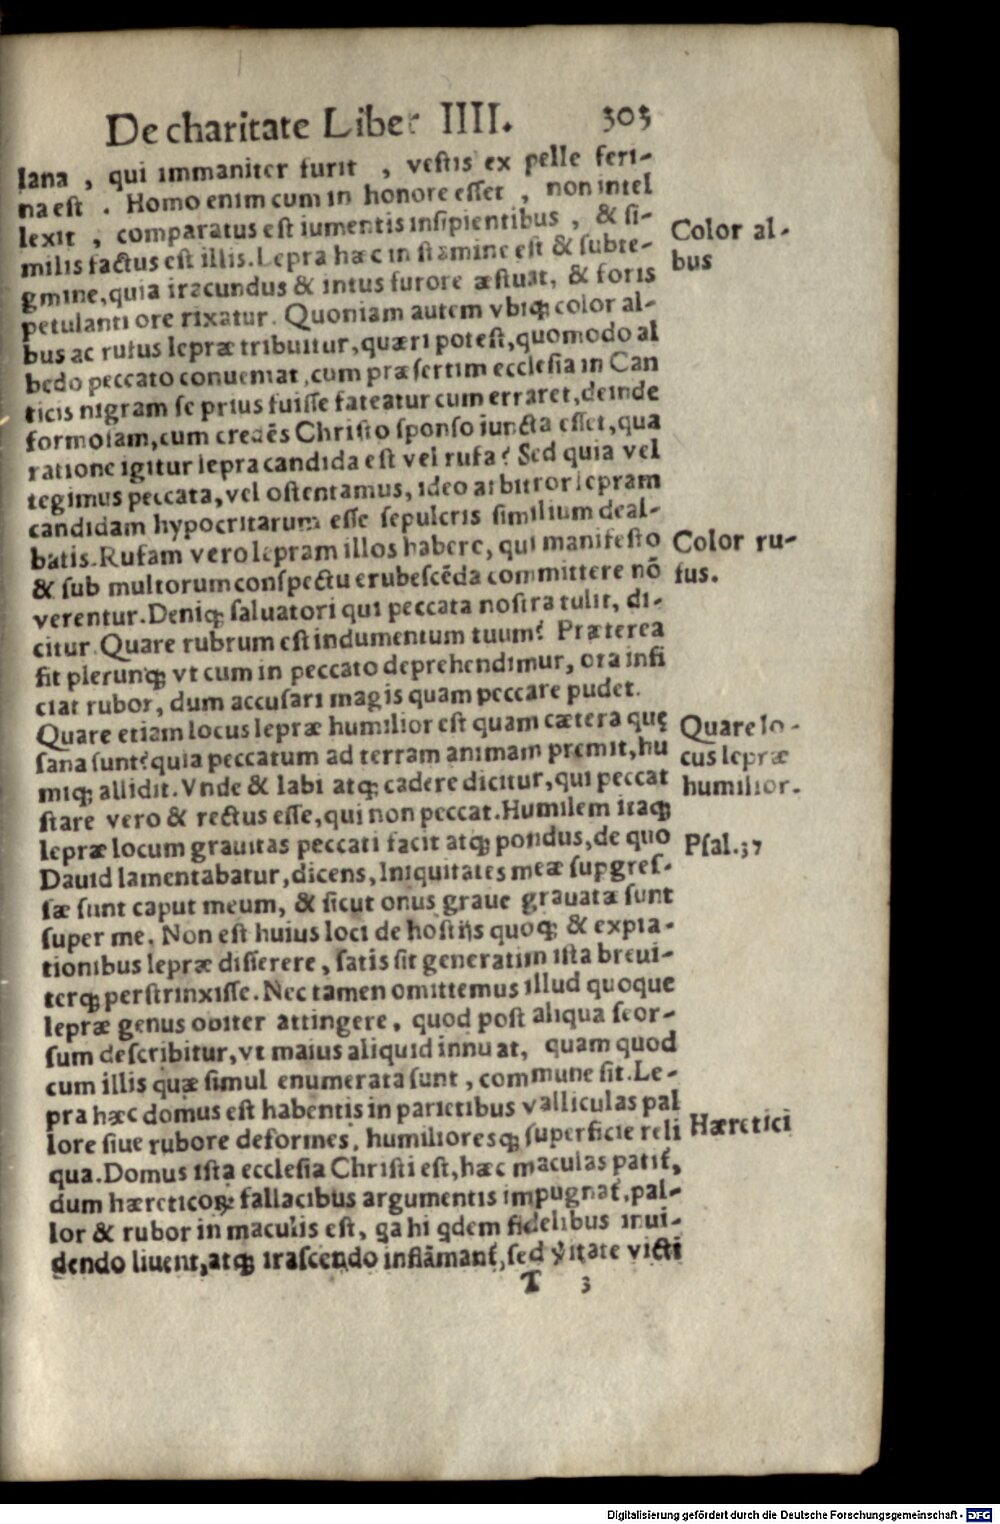 De charitate Liber IIII. 303
lana, qui immaniter furit, vestis ex pelle feri-
na est. Homo enim cum in honore esset, non intel
lexit, comparatus est iumentis insipientibus, & si-
milis factus est illis. Lepra hæc in stamine est & subte-
gmine, quia iracundus & intus furore æstuat, & foris
petulanti ore rixatur. Quoniam autem vbiqꝫ color al-
bus ac rufus lepræ tribuitur, quæri potest, quomodo al
bedo peccato conueniat, cum præsertim ecclesia in Can
ticis nigram se prius fuisse fateatur cum erraret, deinde
formosam, cum credēs Christo sponso iuncta esset, qua
ratione igitur lepra candida est vel rufa? Sed quia vel
tegimus peccata, vel ostentamus, ideo arbitror lepram
candidam hypocritarum esse sepulcris similium deal-
batis. Rufam vero lepram illos habere, qui manifesto
& sub multorum conspectu erubescēda committere nō
verentur. Deniqꝫ saluatori qui peccata nostra tulit, di-
citur. Quare rubrum est indumentum tuum? Præterea
fit plerunqꝫ vt cum in peccato deprehendimur, ora infi
ciat rubor, dum accusari magis quam peccare pudet.
Quare etiam locus lepræ humilior est quam cætera quę
sana sunt? quia peccatum ad terram animam premit, hu
miqꝫ allidit. Vnde & labi atqꝫ cadere dicitur, qui peccat
stare vero & rectus esse, qui non peccat. Humilem itaqꝫ
lepræ locum grauitas peccati facit atqꝫ pondus, de quo
Dauid lamentabatur, dicens, Iniquitates meæ supgres-
sæ sunt caput meum, & sicut onus graue grauatæ sunt
super me. Non est huius loci de hostijs quoqꝫ & expia-
tionibus lepræ disserere, satis sit generatim ista breui-
terqꝫ perstrinxisse. Nec tamen omittemus illud quoque
lepræ genus obiter attingere, quod post aliqua seor-
sum describitur, vt maius aliquid innuat, quam quod
cum illis quæ simul enumerata sunt, commune sit. Le-
pra hæc domus est habentis in parietibus valliculas pal
lore siue rubore deformes, humilioresqꝫ superficie reli
qua. Domus ista ecclesia Christi est, hæc maculas patit̃,
dum hæreticoꝝ fallacibus argumentis impugnat̃, pal-
lor & rubor in maculis est, qa hi qdem fidelibus inui-
dendo liuent, atqꝫ irascendo inflāmant̃, sed v̓itate victi
T 3
Color al-
bus
Color ru-
fus.
Quare lo-
cus lepræ
humilior.
Psal. 37
Hæretici
Digitalisierung gefördert durch die Deutsche Forschungsgemeinschaft - DFG